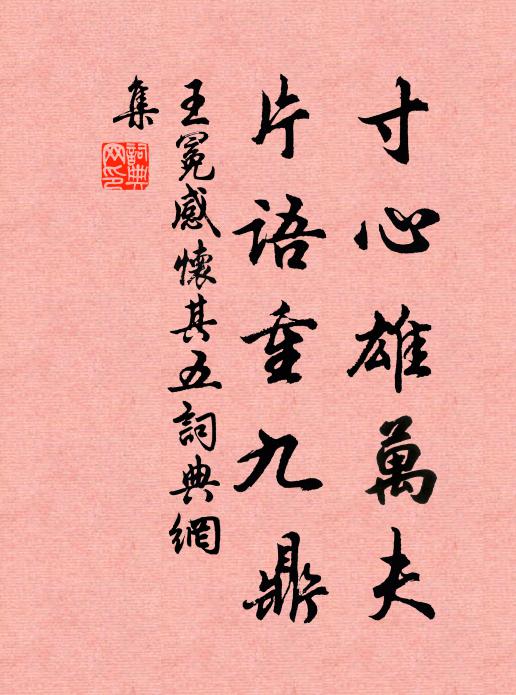 寸心雄萬夫
片語重九鼎
王冕感懷其五詞典網
集
詞典網印